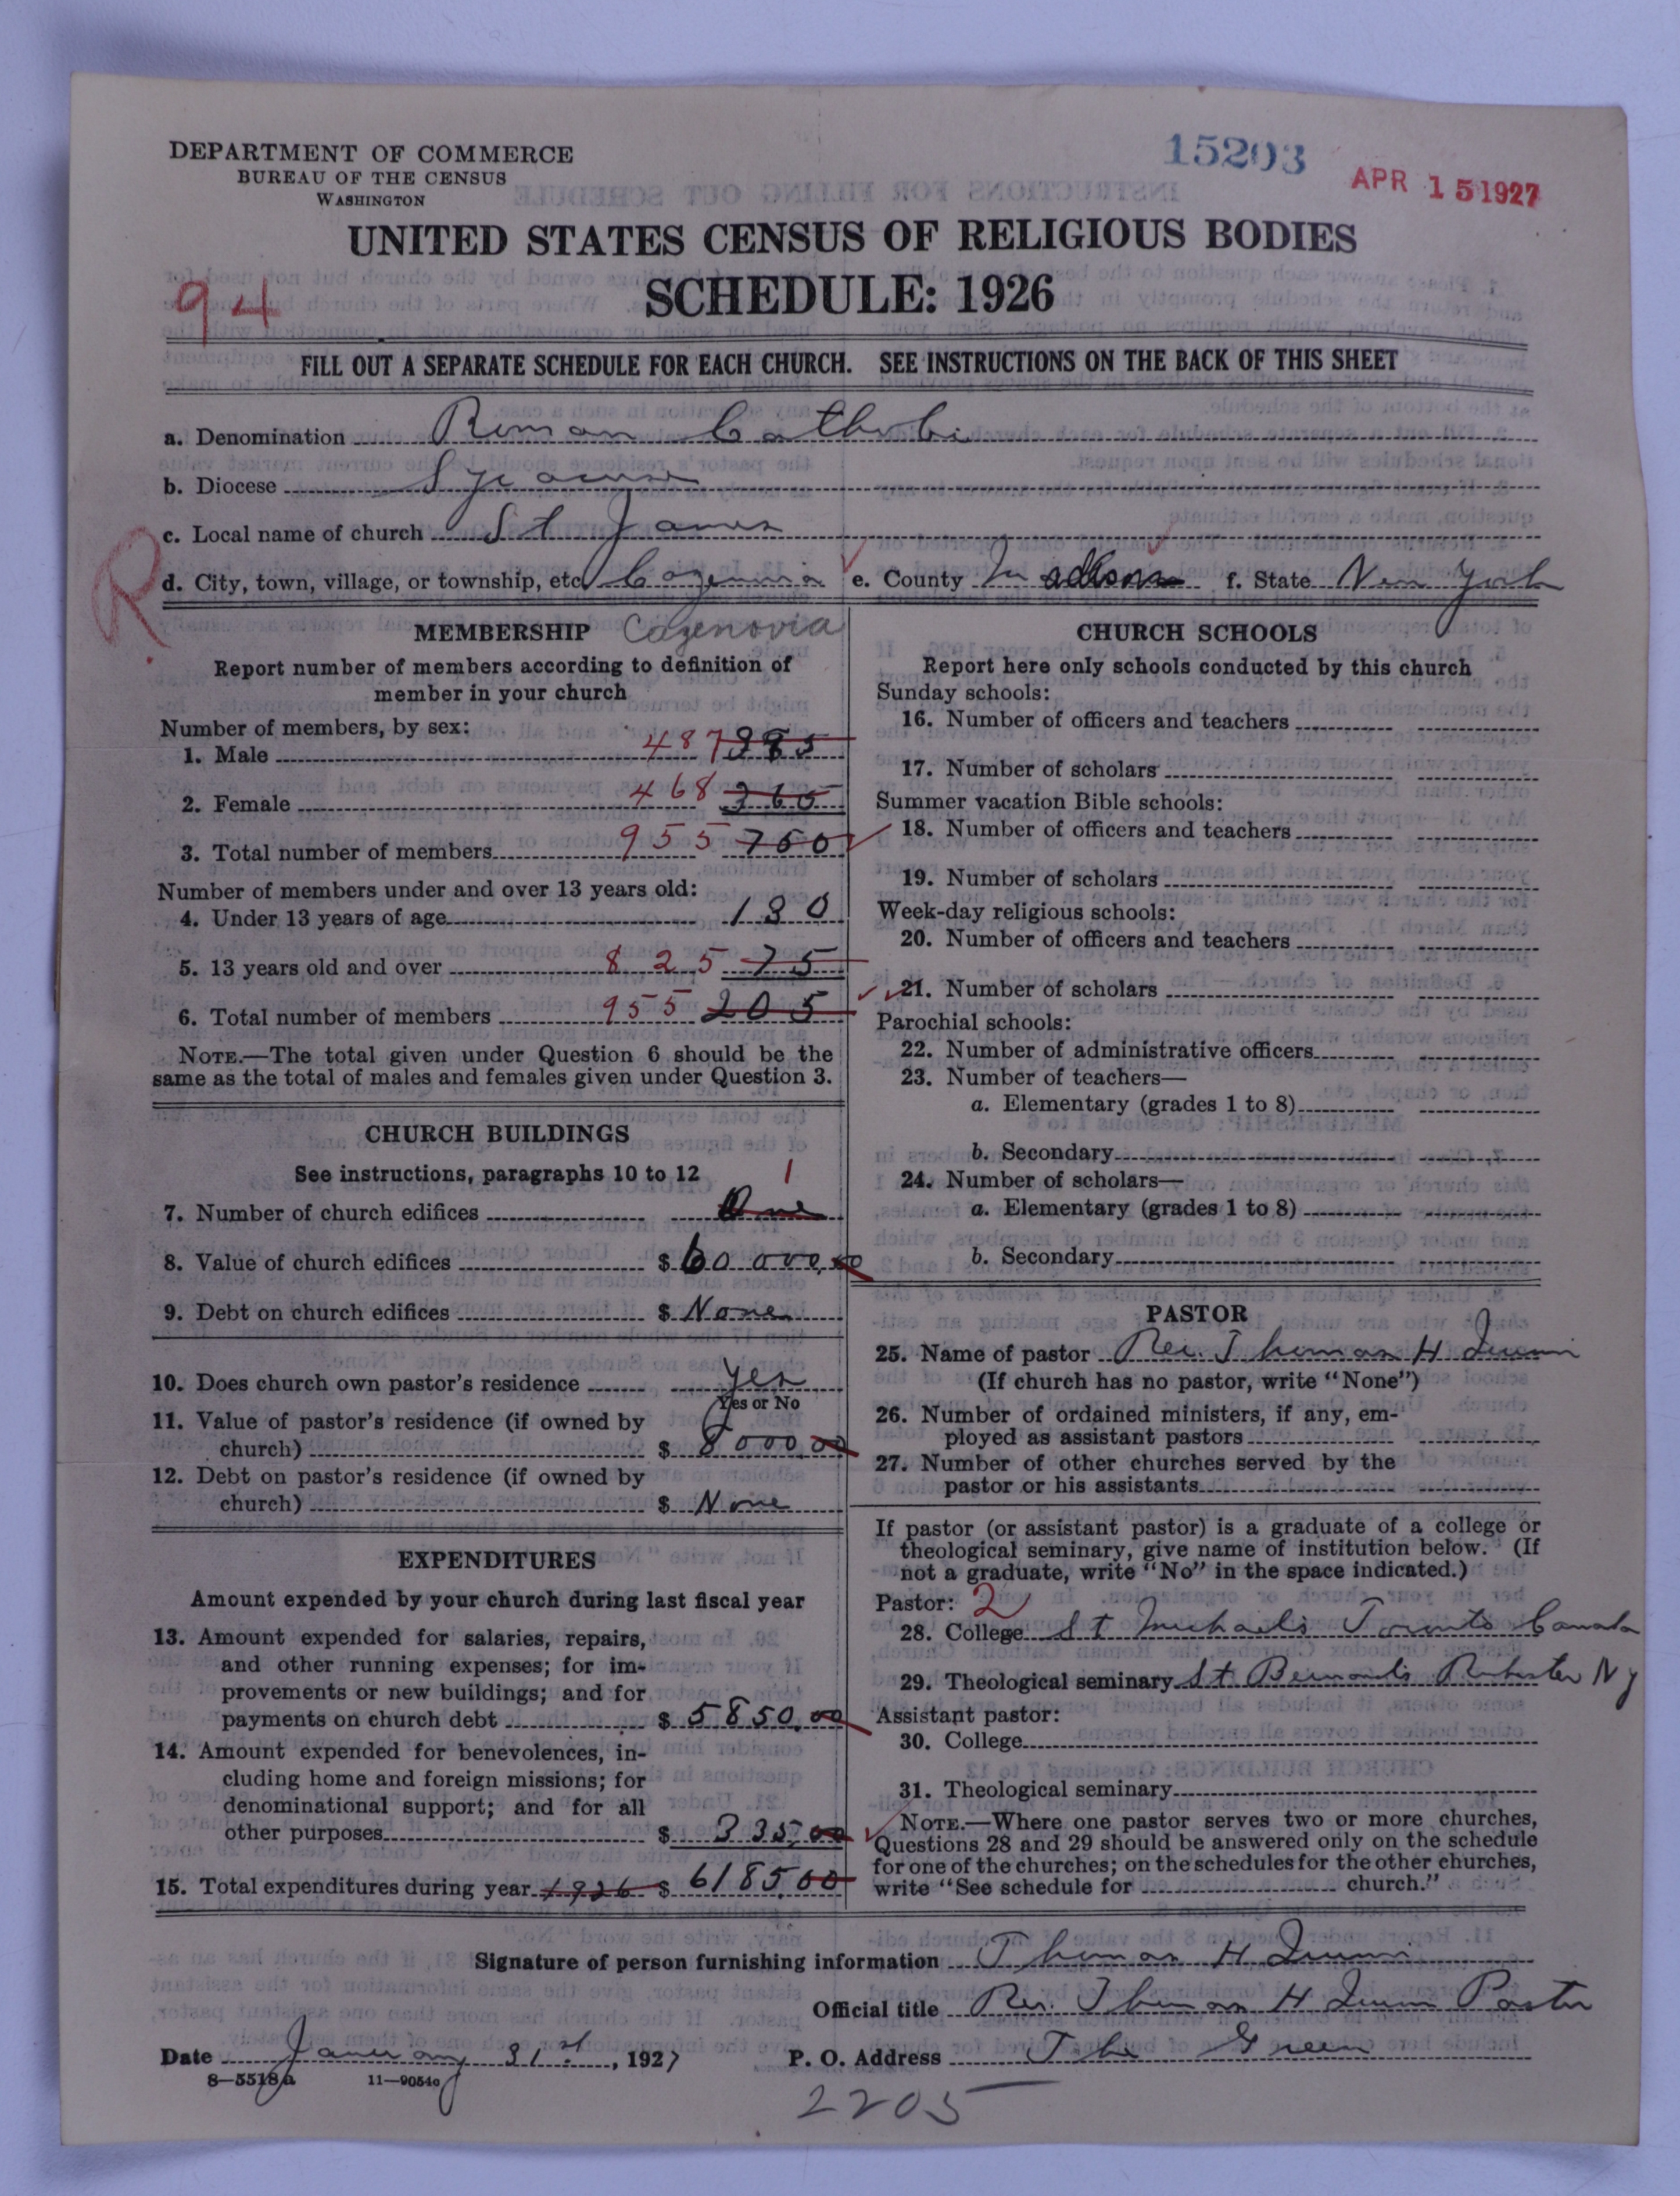 DEPARTMENT OF COMMERCE
BUREAU OF THE CENSUS
WASHINGTON
15203
APR 15 1927
UNITED STATES CENSUS OF RELIGIOUS BODIES
SCHEDULE: 1926
94
FILL OUT A SEPARATE SCHEDULE FOR EACH CHURCH. SEE INSTRUCTIONS ON THE BACK OF THIS SHEET
a. Denomination Roman Catholic
b. Diocese Syracuse
c. Local name of church St James
R
d. City, town, village, or township, etc. Cazenovia e. County Madison f. State New York
MEMBERSHIP Cazenovia
Report number of members according to definition of
member in your church
Number of members, by sex:
1. Male 487 385
2. Female 468
3. Total number of members 955 760
Number of members under and over 13 years old:
4. Under 13 years of age 130
5. 13 years old and over 825 75
6. Total number of members 955 205
NOTE.—The total given under Question 6 should be the
same as the total of males and females given under Question 3.
CHURCH BUILDINGS
See instructions, paragraphs 10 to 12 1
7. Number of church edifices One
8. Value of church edifices $ 60 000,00
9. Debt on church edifices $ None
10. Does church own pastor's residence Yes
Yes or No
11. Value of pastor's residence (if owned by
church) $ 8000.00
12. Debt on pastor's residence (if owned by
church) $ None
EXPENDITURES
Amount expended by your church during last fiscal year
13. Amount expended for salaries, repairs,
and other running expenses; for im-
provements or new buildings; and for
payments on church debt $ 5850.00
14. Amount expended for benevolences, in-
cluding home and foreign missions; for
denominational support; and for all
other purposes $ 335.00
15. Total expenditures during year 1926 $ 6185.00
CHURCH SCHOOLS
Report here only schools conducted by this church
Sunday schools:
16. Number of officers and teachers
17. Number of scholars
Summer vacation Bible schools:
18. Number of officers and teachers
19. Number of scholars
Week-day religious schools:
20. Number of officers and teachers
21. Number of scholars
Parochial schools:
22. Number of administrative officers
23. Number of teachers—
a. Elementary (grades 1 to 8)
b. Secondary
24. Number of scholars—
a. Elementary (grades 1 to 8)
b. Secondary
PASTOR
25. Name of pastor Rev. Thomas H
(If church has no pastor, write "None")
26. Number of ordained ministers, if any, em-
ployed as assistant pastors
27. Number of other churches served by the
pastor or his assistants
If pastor (or assistant pastor) is a graduate of a college or
theological seminary, give name of institution below. (If
not a graduate, write "No" in the space indicated.)
Pastor: 2
28. College St Michaels Toronto Canada
29. Theological seminary St Bernards Rochester NY
Assistant pastor:
30. College
31. Theological seminary
NOTE.—Where one pastor serves two or more churches,
Questions 28 and 29 should be answered only on the schedule
for one of the churches; on the schedules for the other churches,
write "See schedule for church."
Signature of person furnishing information Thomas H
Official title Rev. Thomas H Pastor
Date January 31st, 1927 P. O. Address The Green
8—5518a 11—9054c
2205